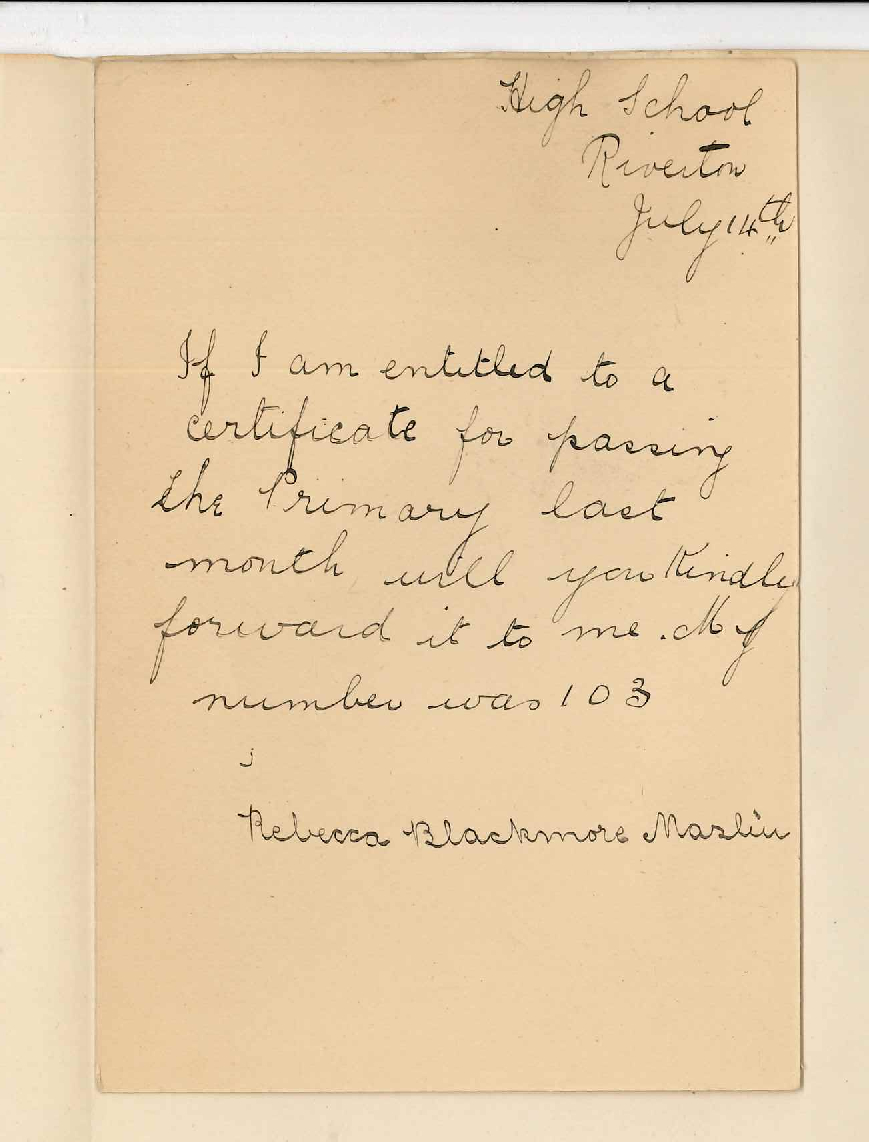 High School
Riverton
July 14th
If I am entitled to a
certificate for passing
the Primary last
month will you Kindly
forward it to me. My
number was 103
Rebecca Blackmore Maslin